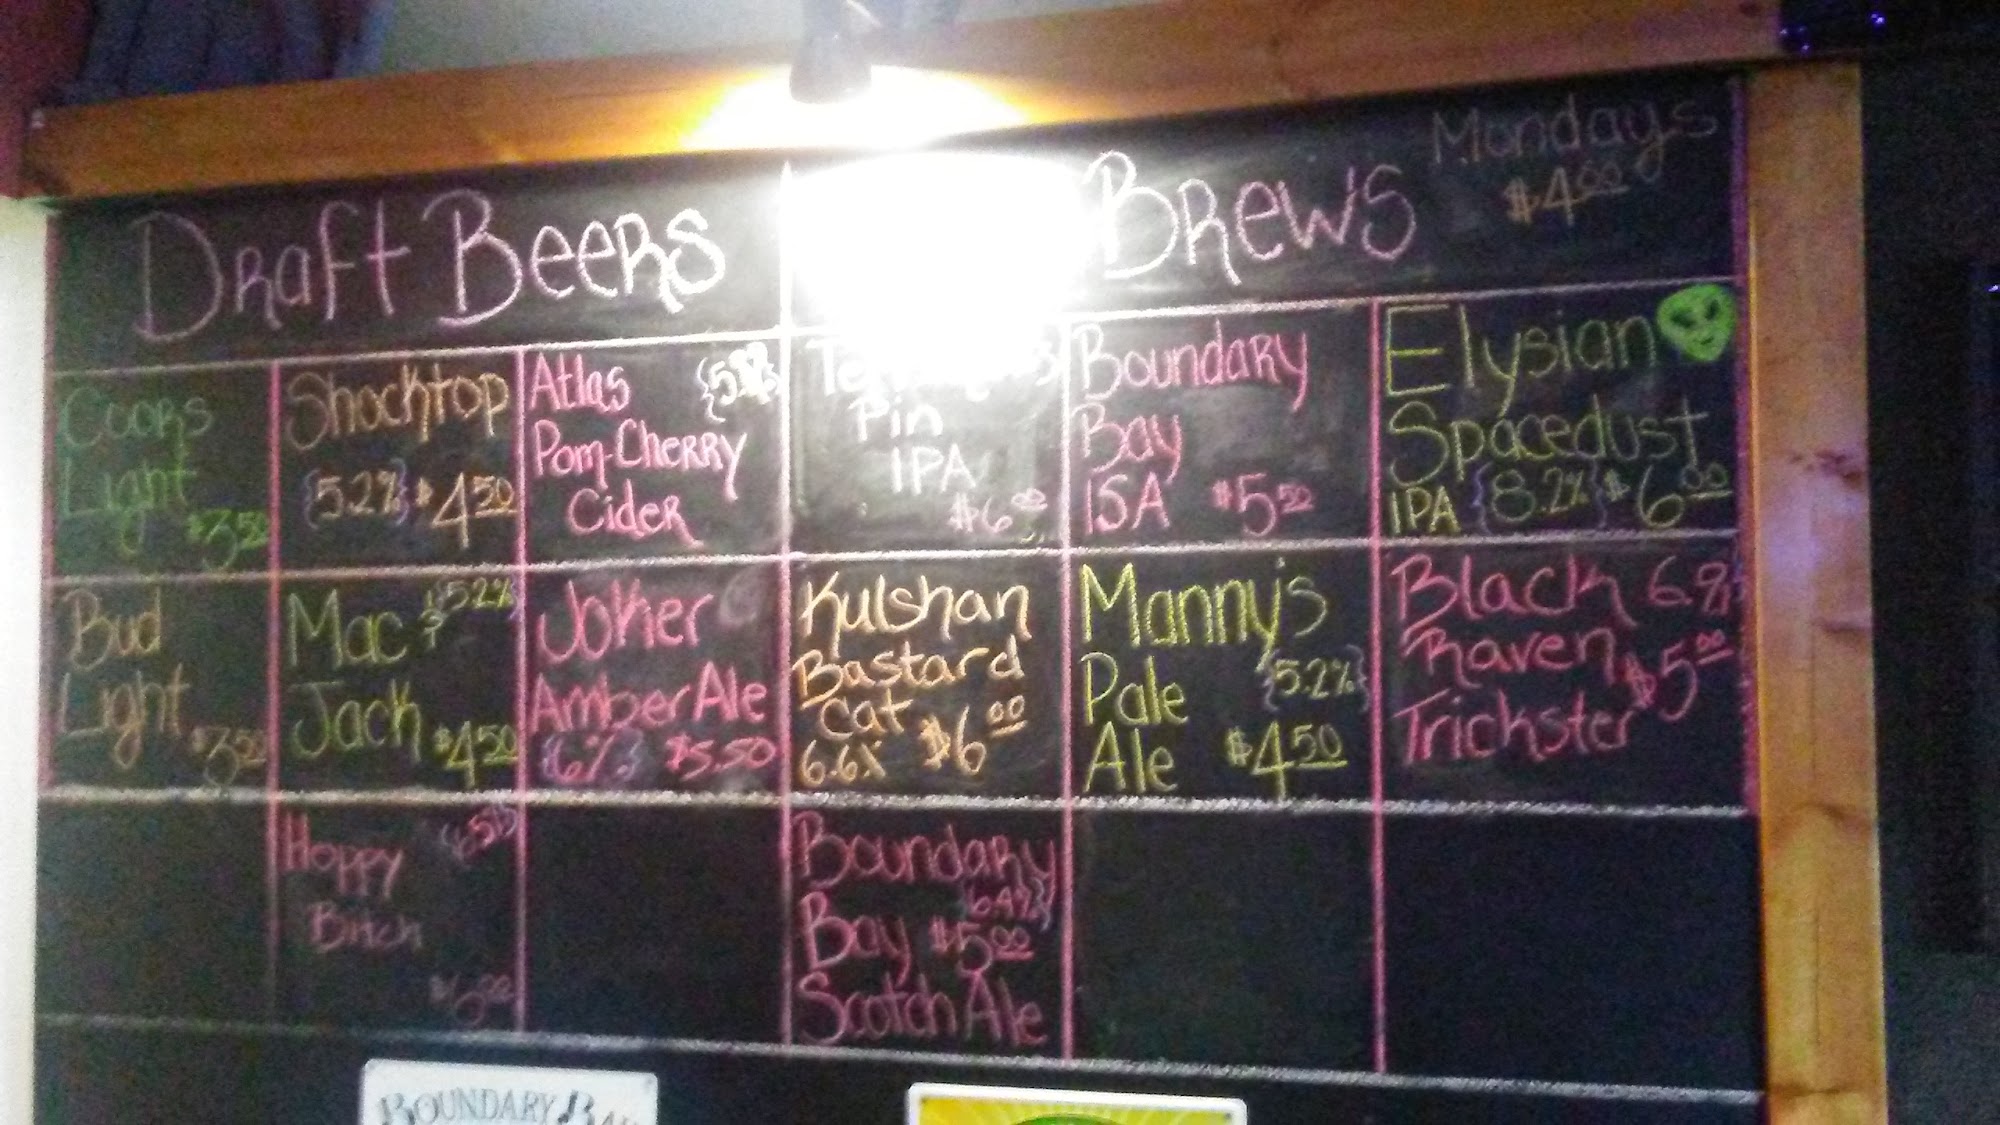 Draft Beers
Brew's
Mondays
$4.00
Coors
Light
$3.50
Shocktop
{5.2%} $4.50
Atlas
Pom-Cherry
Cider
Pin
IPA
$6.00
Boundary
Bay
ISA $5.50
Elysian
Spacedust
IPA {8.2%} $6.00
Bud
Light
$3.50
Mac & {5.2%}
Jack $4.50
Joker
Amber Ale
{6%} $5.50
Kulshan
Bastard
Cat
6.6% $6.00
Manny's
Pale {5.2%}
Ale $4.50
Black
Raven $5.00
Trickster
Hoppy
Bitch
Boundary
{6.4%}
Bay $5.00
Scotch Ale
BOUNDARY BAY